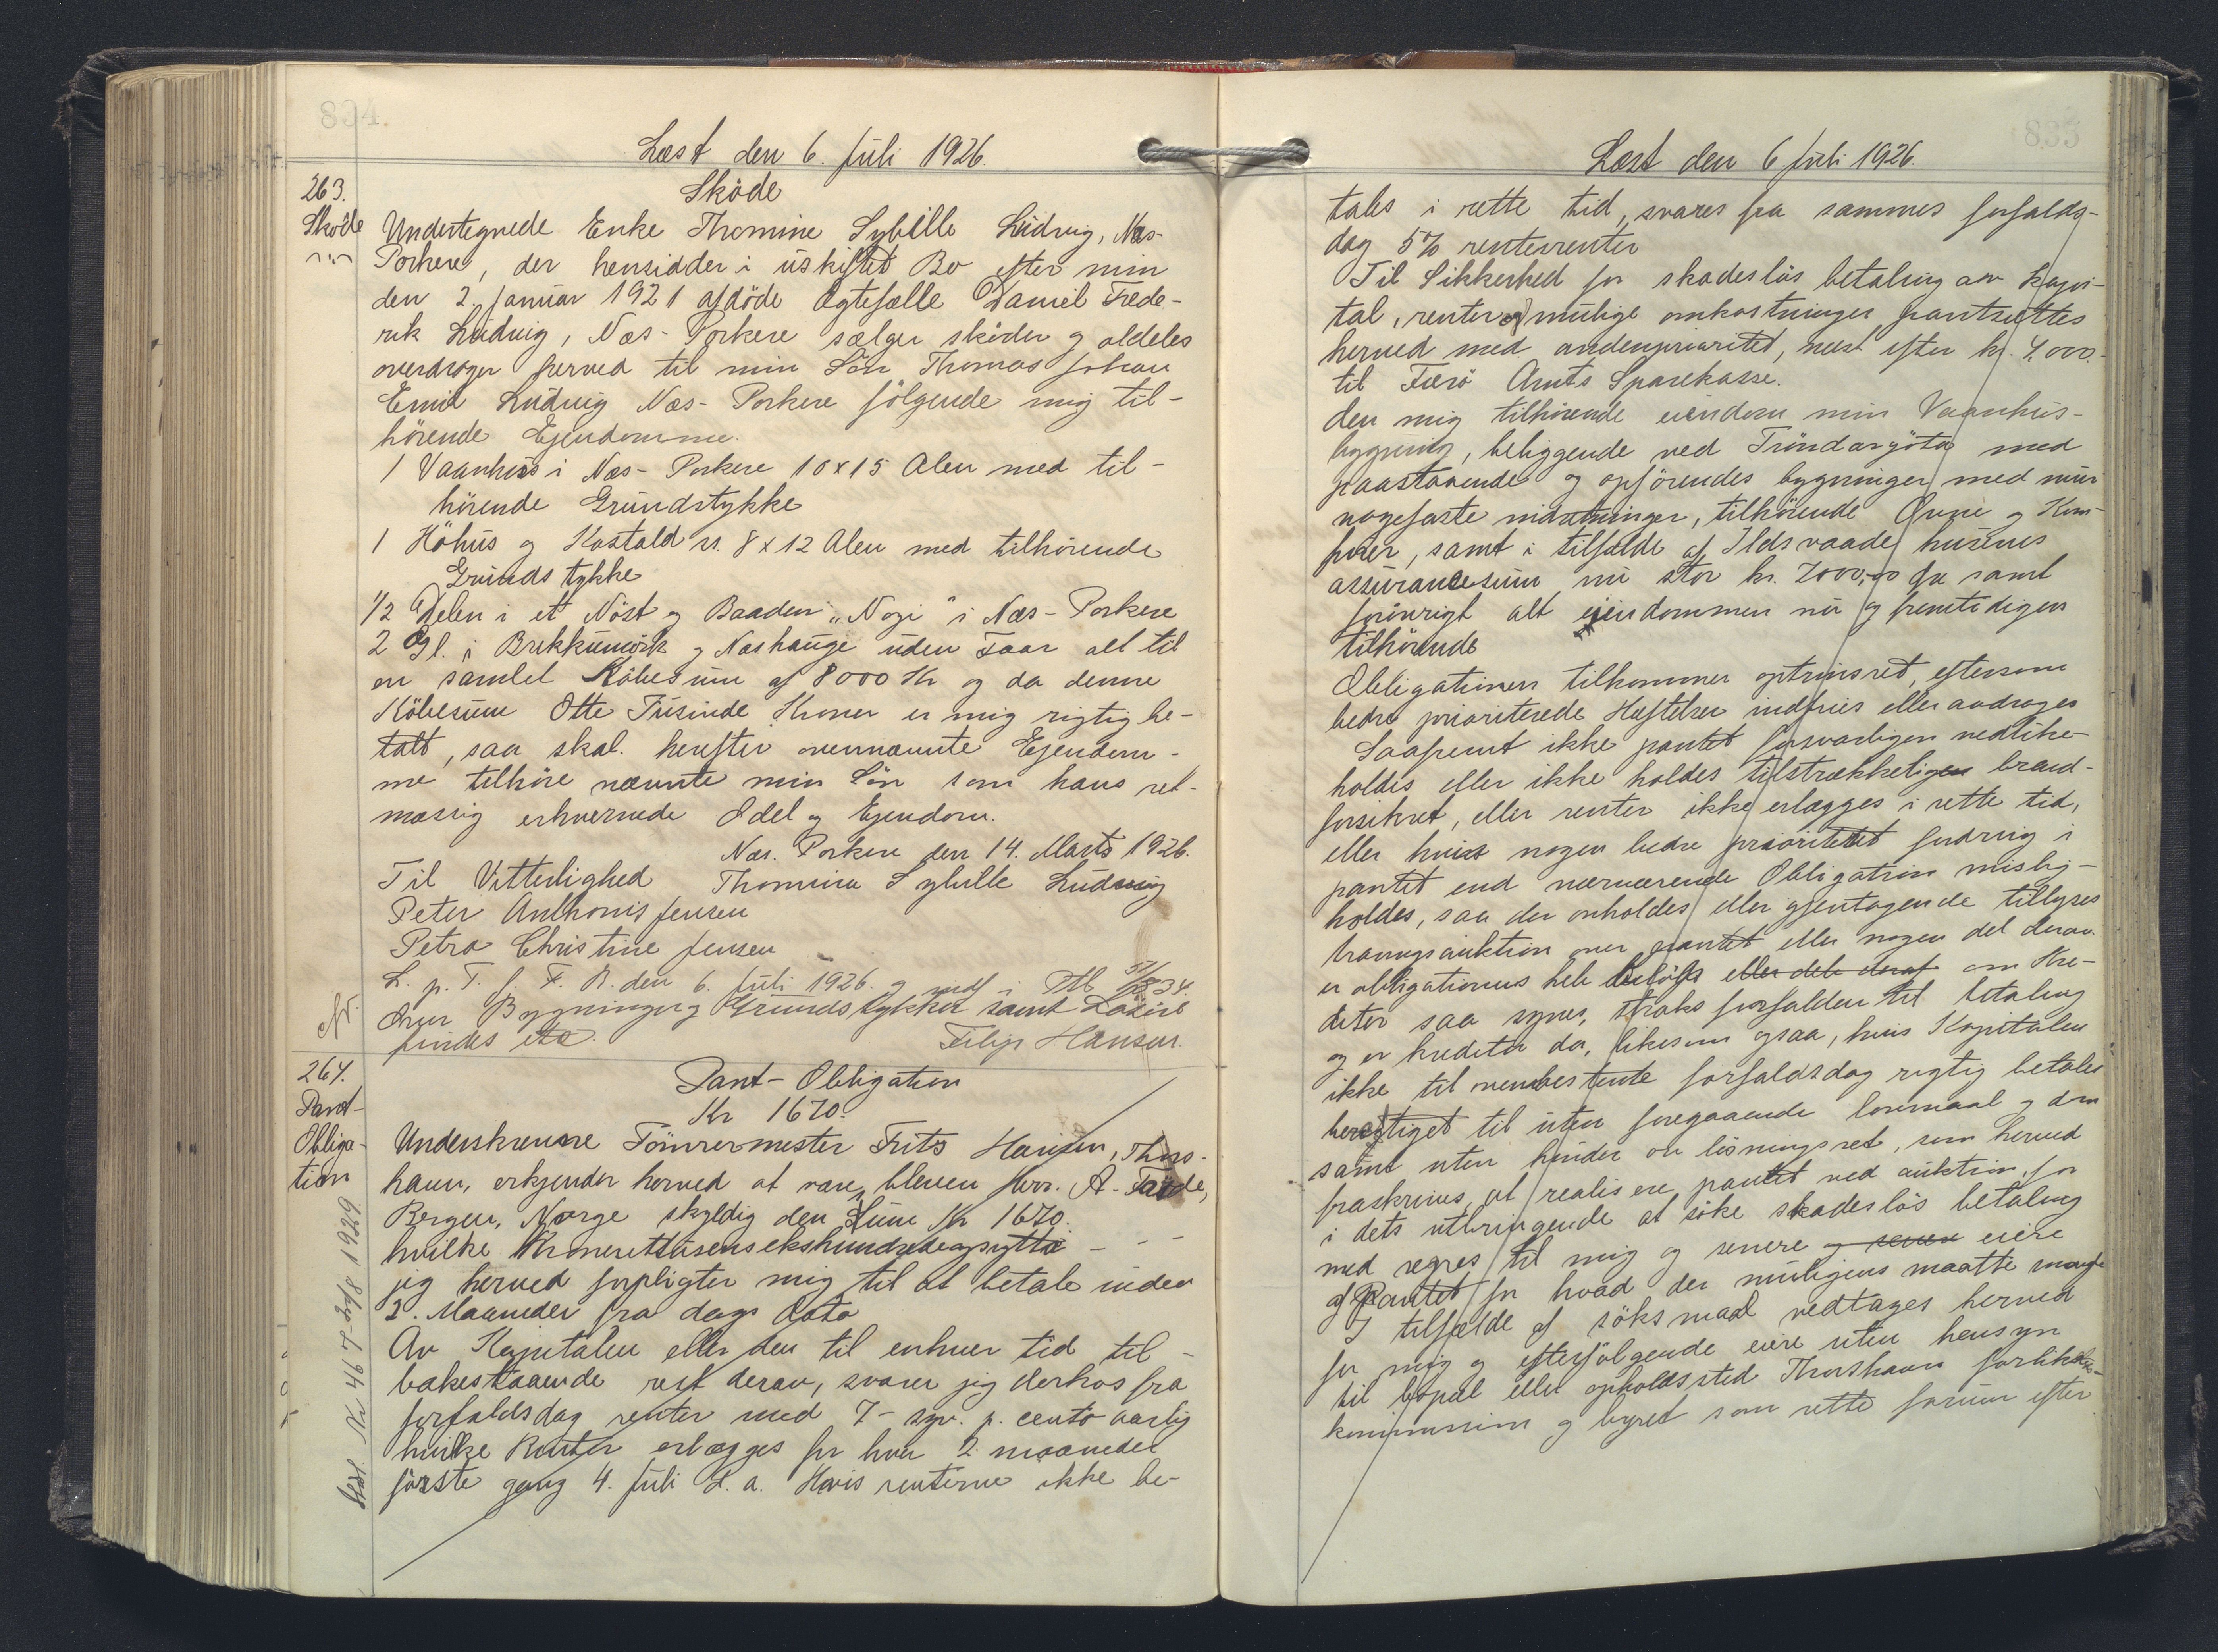 834
Læst den 6. Juli 1926.
263.
Sköde
Sköde
Undertegnede Enke Thomine Sybille Ludvig, Næs-
Porkere, der hensidder i uskiftet Bo efter min
den 2. Januar 1921 afdöde Ægtefælle Daniel Frede-
rik Ludvig, Næs-Porkere sælger sköder og aldeles
overdrager herved til min Sön Thomas Johan
Emil Ludvig Næs-Porkere fölgende mig til-
hörende Ejendomme.
1 Vaanhus i Næs-Porkere 10x15 Alen med til-
hörende Grundstykke
1 Höhus og Kostald 8x12 Alen med tilhörende
Grundstykke
1/2 Delen i et Nöst og Baaden i Næs-Porkere
2 Gl. i og Næshauge uden Faar alt til
en samlet Köbesum af 8000 Kr og da denne
Köbesum Otte Tusinde Kroner er mig rigtig be-
talt, saa skal herefter ovennævnte Ejendom-
me tilhöre nævnte min Sön som hans ret-
mæssig erhvervede Odel og Ejendom.
Næs-Porkere den 14. Marts 1926.
Til Vitterlighed Thomine Sybille Ludvig
Peter Anthonis Jensen
Petra Christine Jensen
L. p. T. f. F. R. den 6. Juli 1926. og indf i Ptb 834.
Over Bygninger og Grundstykket samt Lösöre
findes Filip Hansen.
264.
Pant-
Obliga-
tion
Pant-Obligation
Kr 1670.
Underskrevne Tömrermester Frits Hansen, Thors-
havn, erkjender herved at være bleven Herr. A.
Bergen, Norge skyldig den Sum Kr 1670.
hvilke KroneretttusenseksHundredeogsytti - - -
jeg herved forpligter mig til at betale inden
2. Maaneder fra dags Dato
Av Kapitalen eller den til enhver tid til-
bakestaaende rest derav, svarer jeg derhos fra
forfaldsdag renter med 7 - syv. p. cento aarlig
hvilke Renter erlægges for hver 2. maaneder
förste gang 4. Juli d. a. Hvis renterne ikke be-
1929
835
Læst den 6. Juli 1926.
tales i rette tid, svares fra sammes forfalds-
dag 5% rentesrenter
Til Sikkerhed for skadeslös betaling av kapi-
tal, renter og mulige omkostninger pantsættes
herved med andenprioritet, næst efter kr. 4.000.-
til Færö Amts Sparekasse.
den mig tilhörende eiendom min Vaanhus-
bygning, beliggende ved Tröndargöta med
paastaaende og opförendes bygninger med mur
nagefaste indretninger, tilhörende Ovne og Kom-
furer, samt i tilfælde af Ildsvaade husenes
assurancesum nu stor kr. 7000,00 samt
forövrigt alt eiendommen nu og fremtidigen
tilhörende
Obligationen tilkommer optrinsret, eftersom
bedre prioriterede Heftelser indfries eller avdrages
Saafremt ikke pantet forsvarligen vedlike-
holdes eller ikke holdes tilstrækkeligen brand-
forsikret, eller renter ikke erlægges i rette tid,
eller hvis nogen bedre prioritetet fordring i
pantet end nærværende Obligation mislig-
holdes, saa der avholdes eller gjentagende tillyses
tvangsauktion over pantet eller nogen del derav
er obligationens hele belöp eller dele deraf om Kre-
ditor saa synes, straks forfalden til betaling
og er kreditor da, likesom ogsaa, hvis Kapitalen
ikke til ovenbestemte forfaldsdag rigtig betales
berettiget til uten foregaaende lovmaal og dom
samt uten hinder av lösningsret, som herved
fraskrives, at realisere pantet ved auktion, for
i dets utbringende at söke skadeslös betaling
med regres til mig og senere og senere eiere
af Pantet for hvad der muligens maatte mangle
I tilfælde af söksmaal vedtages herved
for mig og efterfölgende eiere uten hensyn
til bopæl eller opholdssted Thorshavn forliks-
kommission og byret som rette forum efter